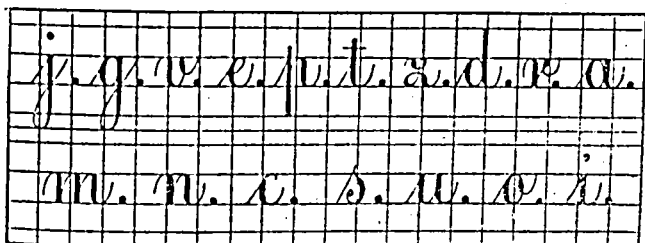 j. g. v. e. p. t. z. d. r. a.
m. n. c. s. u. o. i.